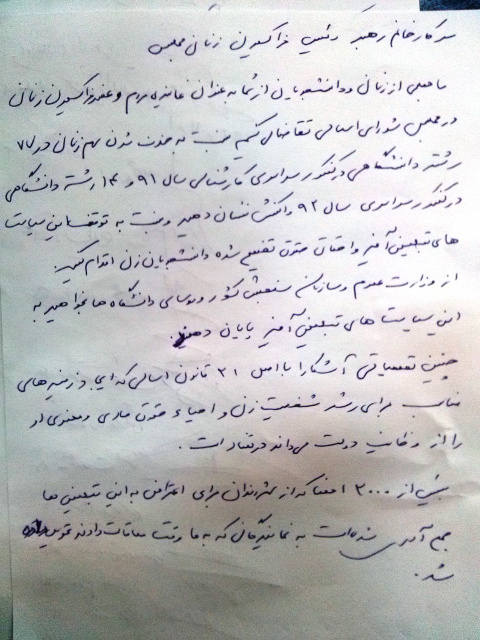 سرکار خانم رهبر رئیس فراکسیون زنان مجلس
ما جمعی از زنان و دانشجویان از شما به عنوان نماینده مردم و عضو فراکسیون زنان
در مجلس شورای اسلامی تقاضا می کنیم نسبت به حذف شدن سهم زنان در ۷۷
رشته دانشگاهی در کنکور سراسری کارشناسی سال ۹۱ و ۱۴ رشته دانشگاهی
در کنکور سراسری سال ۹۲ واکنش نشان دهید و نسبت به توقف این سیاست
های تبعیض آمیز و احقاق حقوق تضییع شده دانشجویان زن اقدام کنید.
از وزارت علوم و سازمان سنجش کشور و روسای دانشگاه ها بخواهید به
این سیاست های تبعیض آمیز پایان دهند.
چنین تصمیماتی آشکارا با اصل ۲۱ قانون اساسی که ایجاد زمینه های
مناسب برای رشد شخصیت زن و احیاء حقوق مادی و معنوی او
را از وظایف دولت می داند در تضاد است.
بیش از ۳۰۰۰ امضا که از شهروندان برای اعتراض به این تبعیض ها
جمع آوری شده است به نمایندگانی که به ما وقت ملاقات دادند تحویل داده
شد.